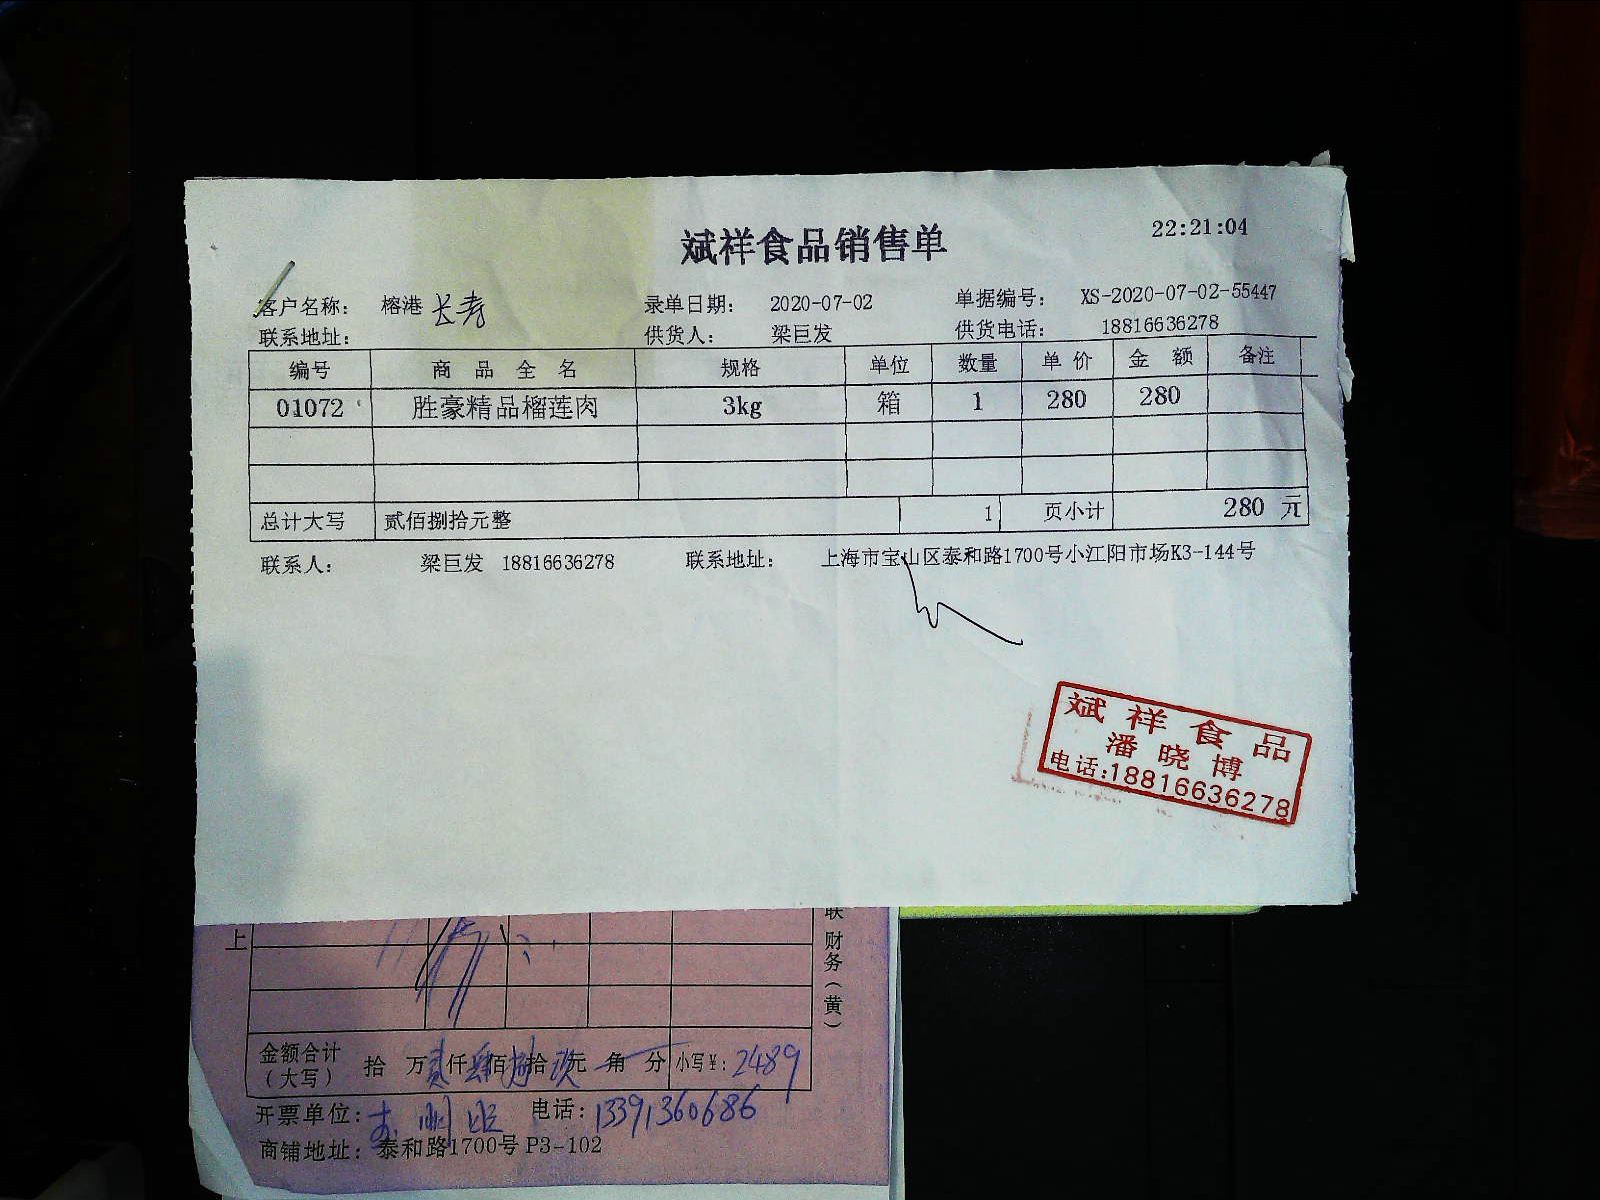 斌祥食品销售单
22:21:04
客户名称： 榕港 长寿 录单日期： 2020-07-02 单据编号： XS-2020-07-02-55447
联系地址： 供货人： 梁巨发 供货电话： 18816636278
编号 商品全名 规格 单位 数量 单价 金额 备注
01072 胜豪精品榴莲肉 3kg 箱 1 280 280
总计大写 贰佰捌拾元整 1 页小计 280 元
联系人： 梁巨发 18816636278 联系地址： 上海市宝山区泰和路1700号小江阳市场K3-144号
斌祥食品
潘晓博
电话:18816636278
上
联 财务(黄)
金额合计(大写) 拾 万 贰 仟 肆 佰 捌 拾 玖 元 角 分 小写￥: 2489
开票单位: 电话: 13391360686
商铺地址: 泰和路1700号 P3-102